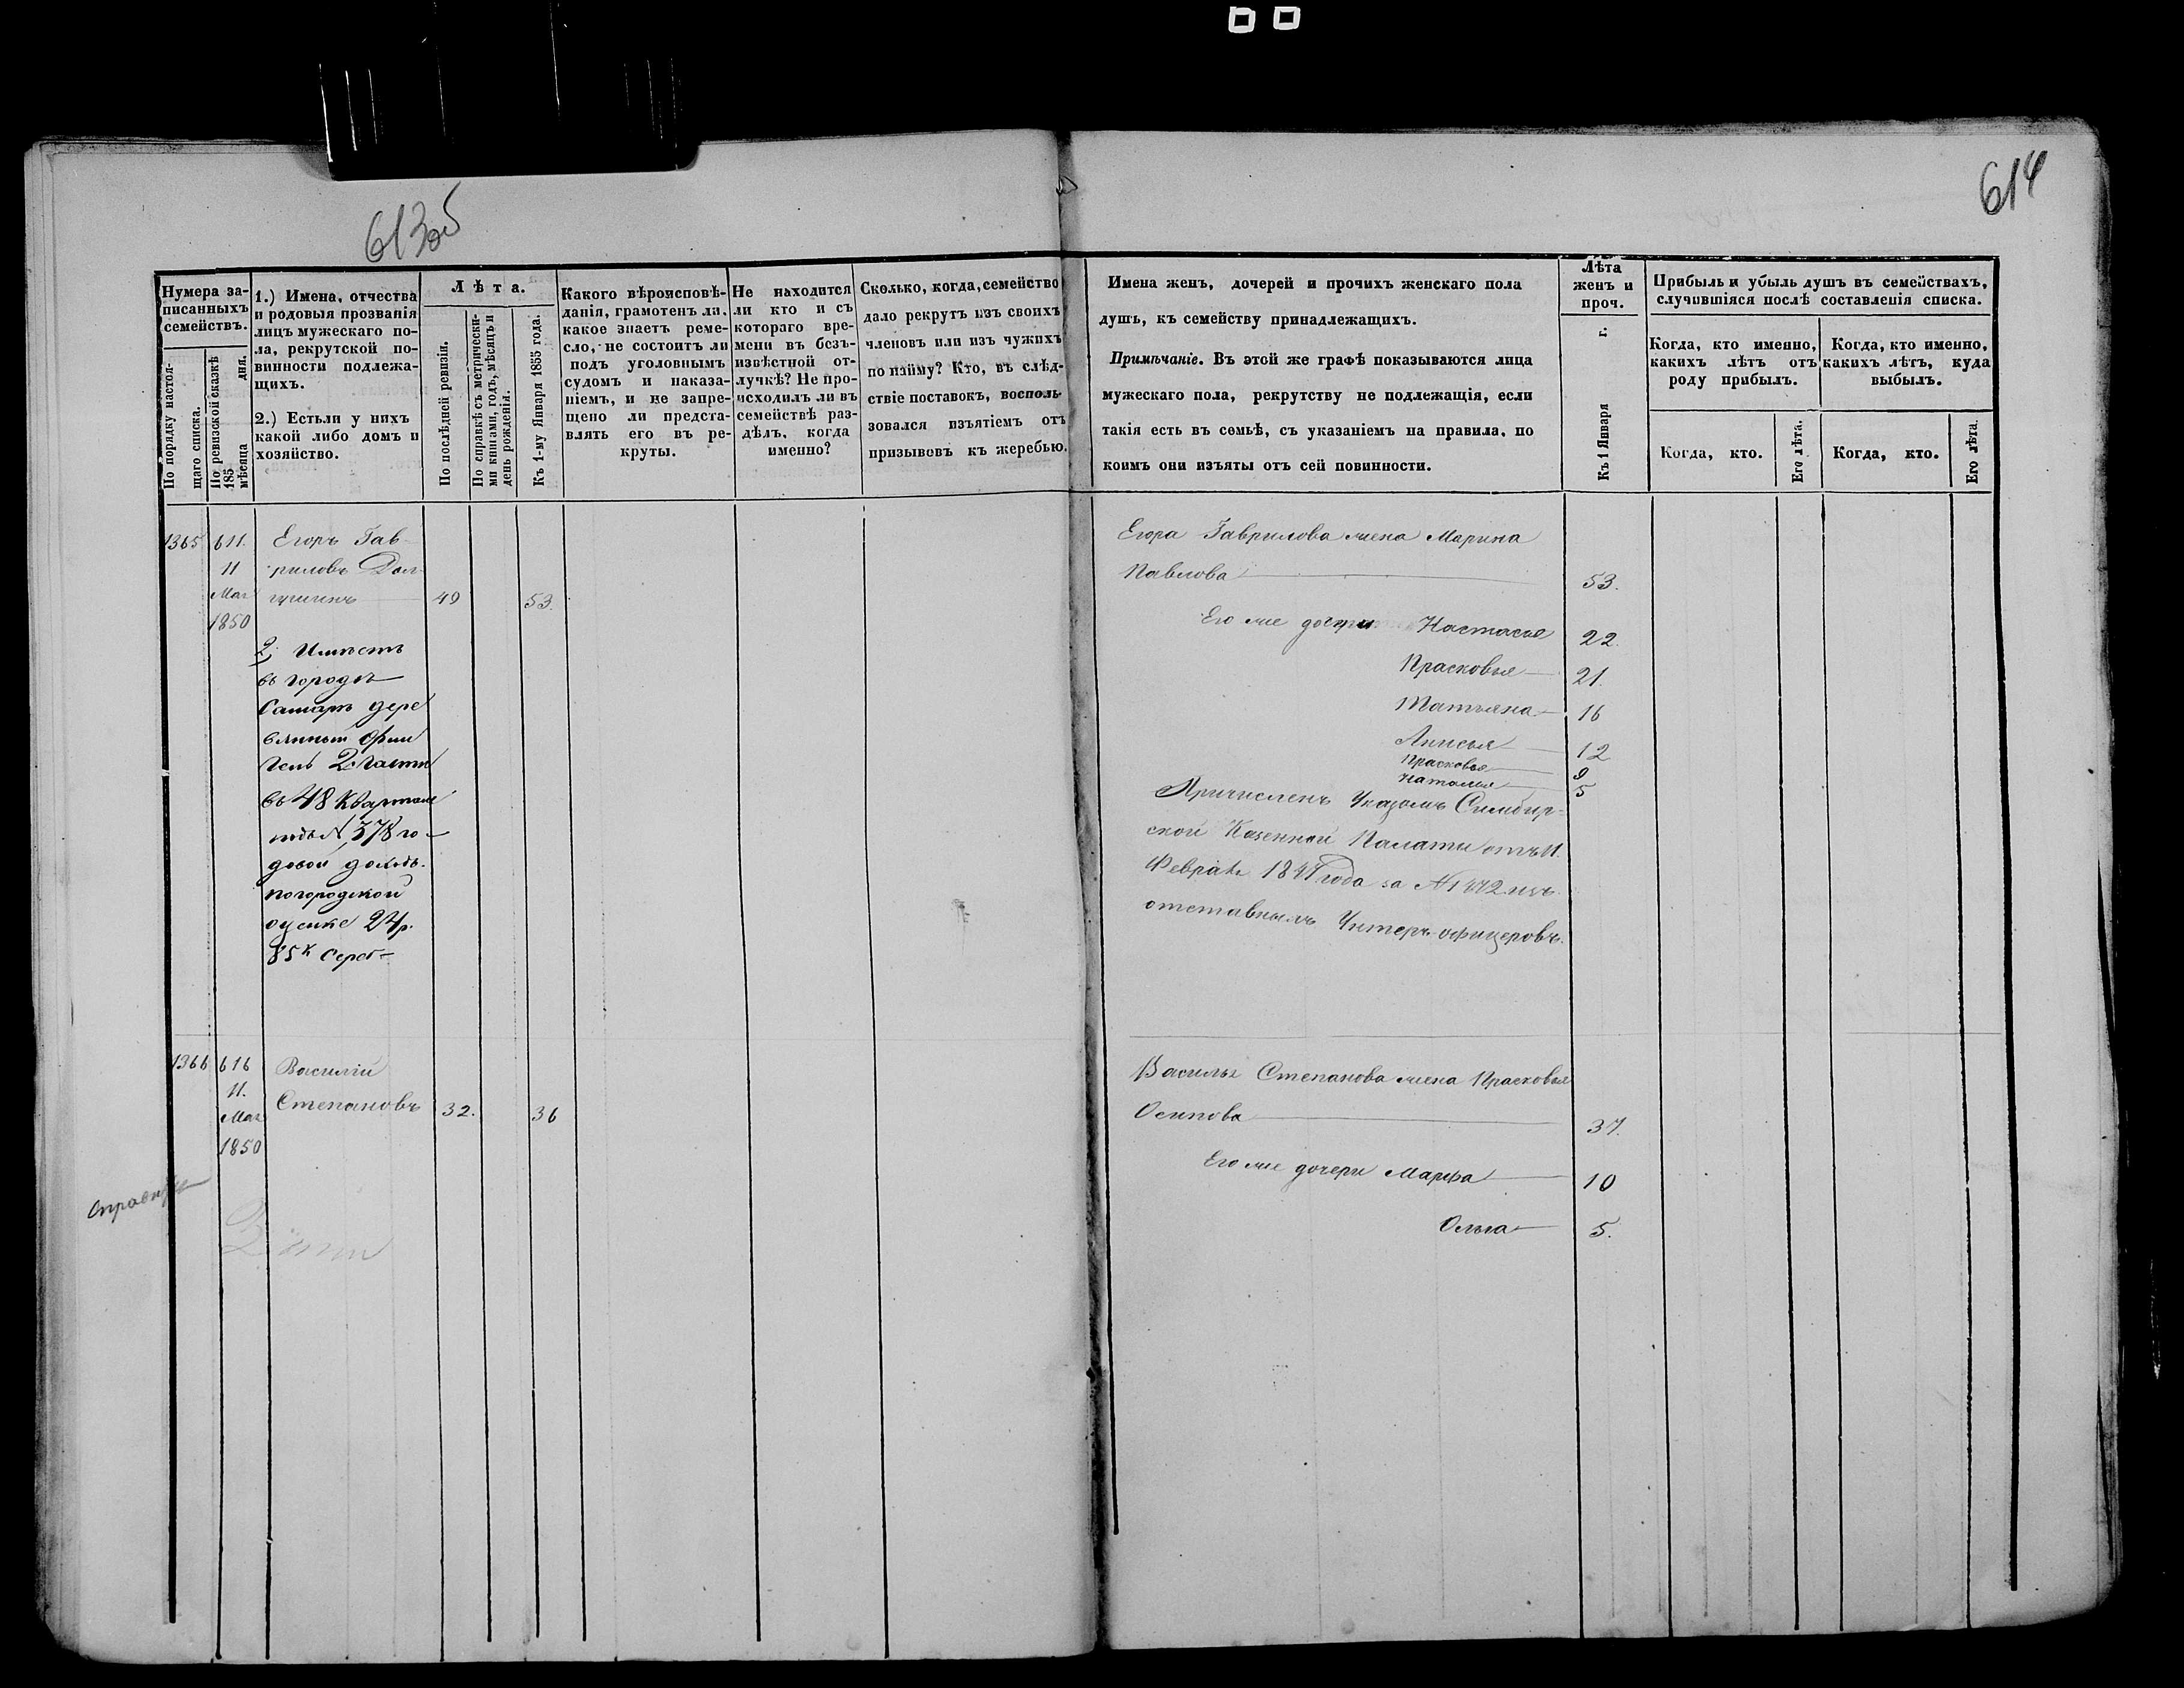 613об
614
Нумера за-
писанныхъ
семействъ.
По порядку настоя-
щаго списка.
По ревизской сказкѣ
185 дня.
мѣсяца
1.) Имена, отчества
и родовыя прозванія
лицъ мужескаго по-
ла, рекрутской по-
винности подлежа-
щихъ.
2.) Естьли у нихъ
какой либо домъ и
хозяйство.
Лѣта.
По послѣдней ревизіи.
По справкѣ съ метрически-
ми книгами, годъ, мѣсяцъ и
день рожденія.
Къ 1-му Января 1855 года.
Какого вѣроисповѣ-
данія, грамотенъ ли,
какое знаетъ реме-
сло, не состоитъ ли
подъ уголовнымъ
судомъ и наказа-
ніемъ, и не запре-
щено ли предста-
влять его въ ре-
круты.
Не находится
ли кто и съ
котораго вре-
мени въ безъ-
извѣстной от-
лучкѣ? Не про-
исходилъ ли въ
семействѣ раз-
дѣлъ, когда
именно?
Сколько, когда, семейство
дало рекрутъ изъ своихъ
членовъ или изъ чужихъ
по найму? Кто, въ слѣд-
ствіе поставокъ, восполь-
зовался изъятіемъ отъ
призывовъ къ жеребью.
Имена женъ, дочерей и прочихъ женскаго пола
душъ, къ семейству принадлежащихъ.
Примѣчаніе. Въ этой же графѣ показываются лица
мужескаго пола, рекрутству не подлежащія, если
такія есть въ семьѣ, съ указаніемъ на правила, по
коимъ они изъяты отъ сей повинности.
Лѣта
женъ и
проч.
Къ 1 Января г.
Прибыль и убыль душъ въ семействахъ,
случившіяся послѣ составленія списка.
Когда, кто именно,
какихъ лѣтъ отъ
роду прибылъ.
Когда, кто именно,
какихъ лѣтъ, куда
выбылъ.
Когда, кто.
Его лѣта.
Когда, кто.
Его лѣта.
1365 611. Егоръ Гав-
11 риловъ Дол-
Мая гушинъ 49 53.
1850
2; Имѣетъ
въ городѣ
Самарѣ дере
вянный
2 части
въ 48 Квартале
подъ N 378 го-
довой доходъ
погородской
оценке 24 р.
85 к Сереб
Егора Гаврилова жена Марина
Павлова 53.
Его же дочери Настасья 22.
Прасковья 21.
Татьяна 16
Анисья 12
Прасковья 9
Наталья 5
Причисленъ Указомъ Симбир-
ской Казенной Палаты отъ 11.
Февраля года за N изъ
отставныхъ Унтеръ-офицеровъ.
1366 616 Василій
11.
Мая Степановъ 32. 36
1850
Василья Степанова жена Прасковья
Осипова 37.
Его же дочери Марфа 10
Ольга 5.